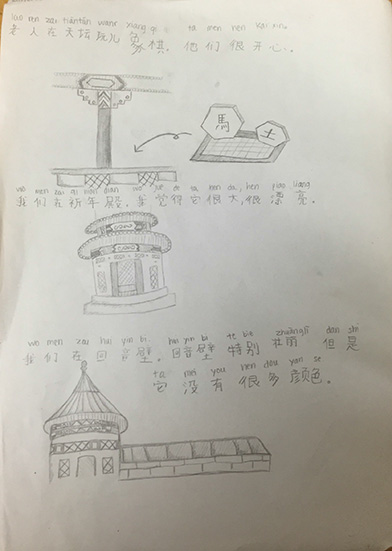 lao ren zai tiāntán wanr xiang qi ta men hen kai xin.
老人在天坛玩儿象棋. 他们很开心.
馬 士
wo men zai qi nian dian wo jue de ta hen da, hen piao liang
我们在祈年殿. 我觉得它很大,很漂亮.
wo men zai hui yin bi. hui yin bi te bie zhuānglì dan shi
我们在回音壁. 回音壁特别壮丽 但是
ta mei you hen duo yan se
它没有很多颜色.